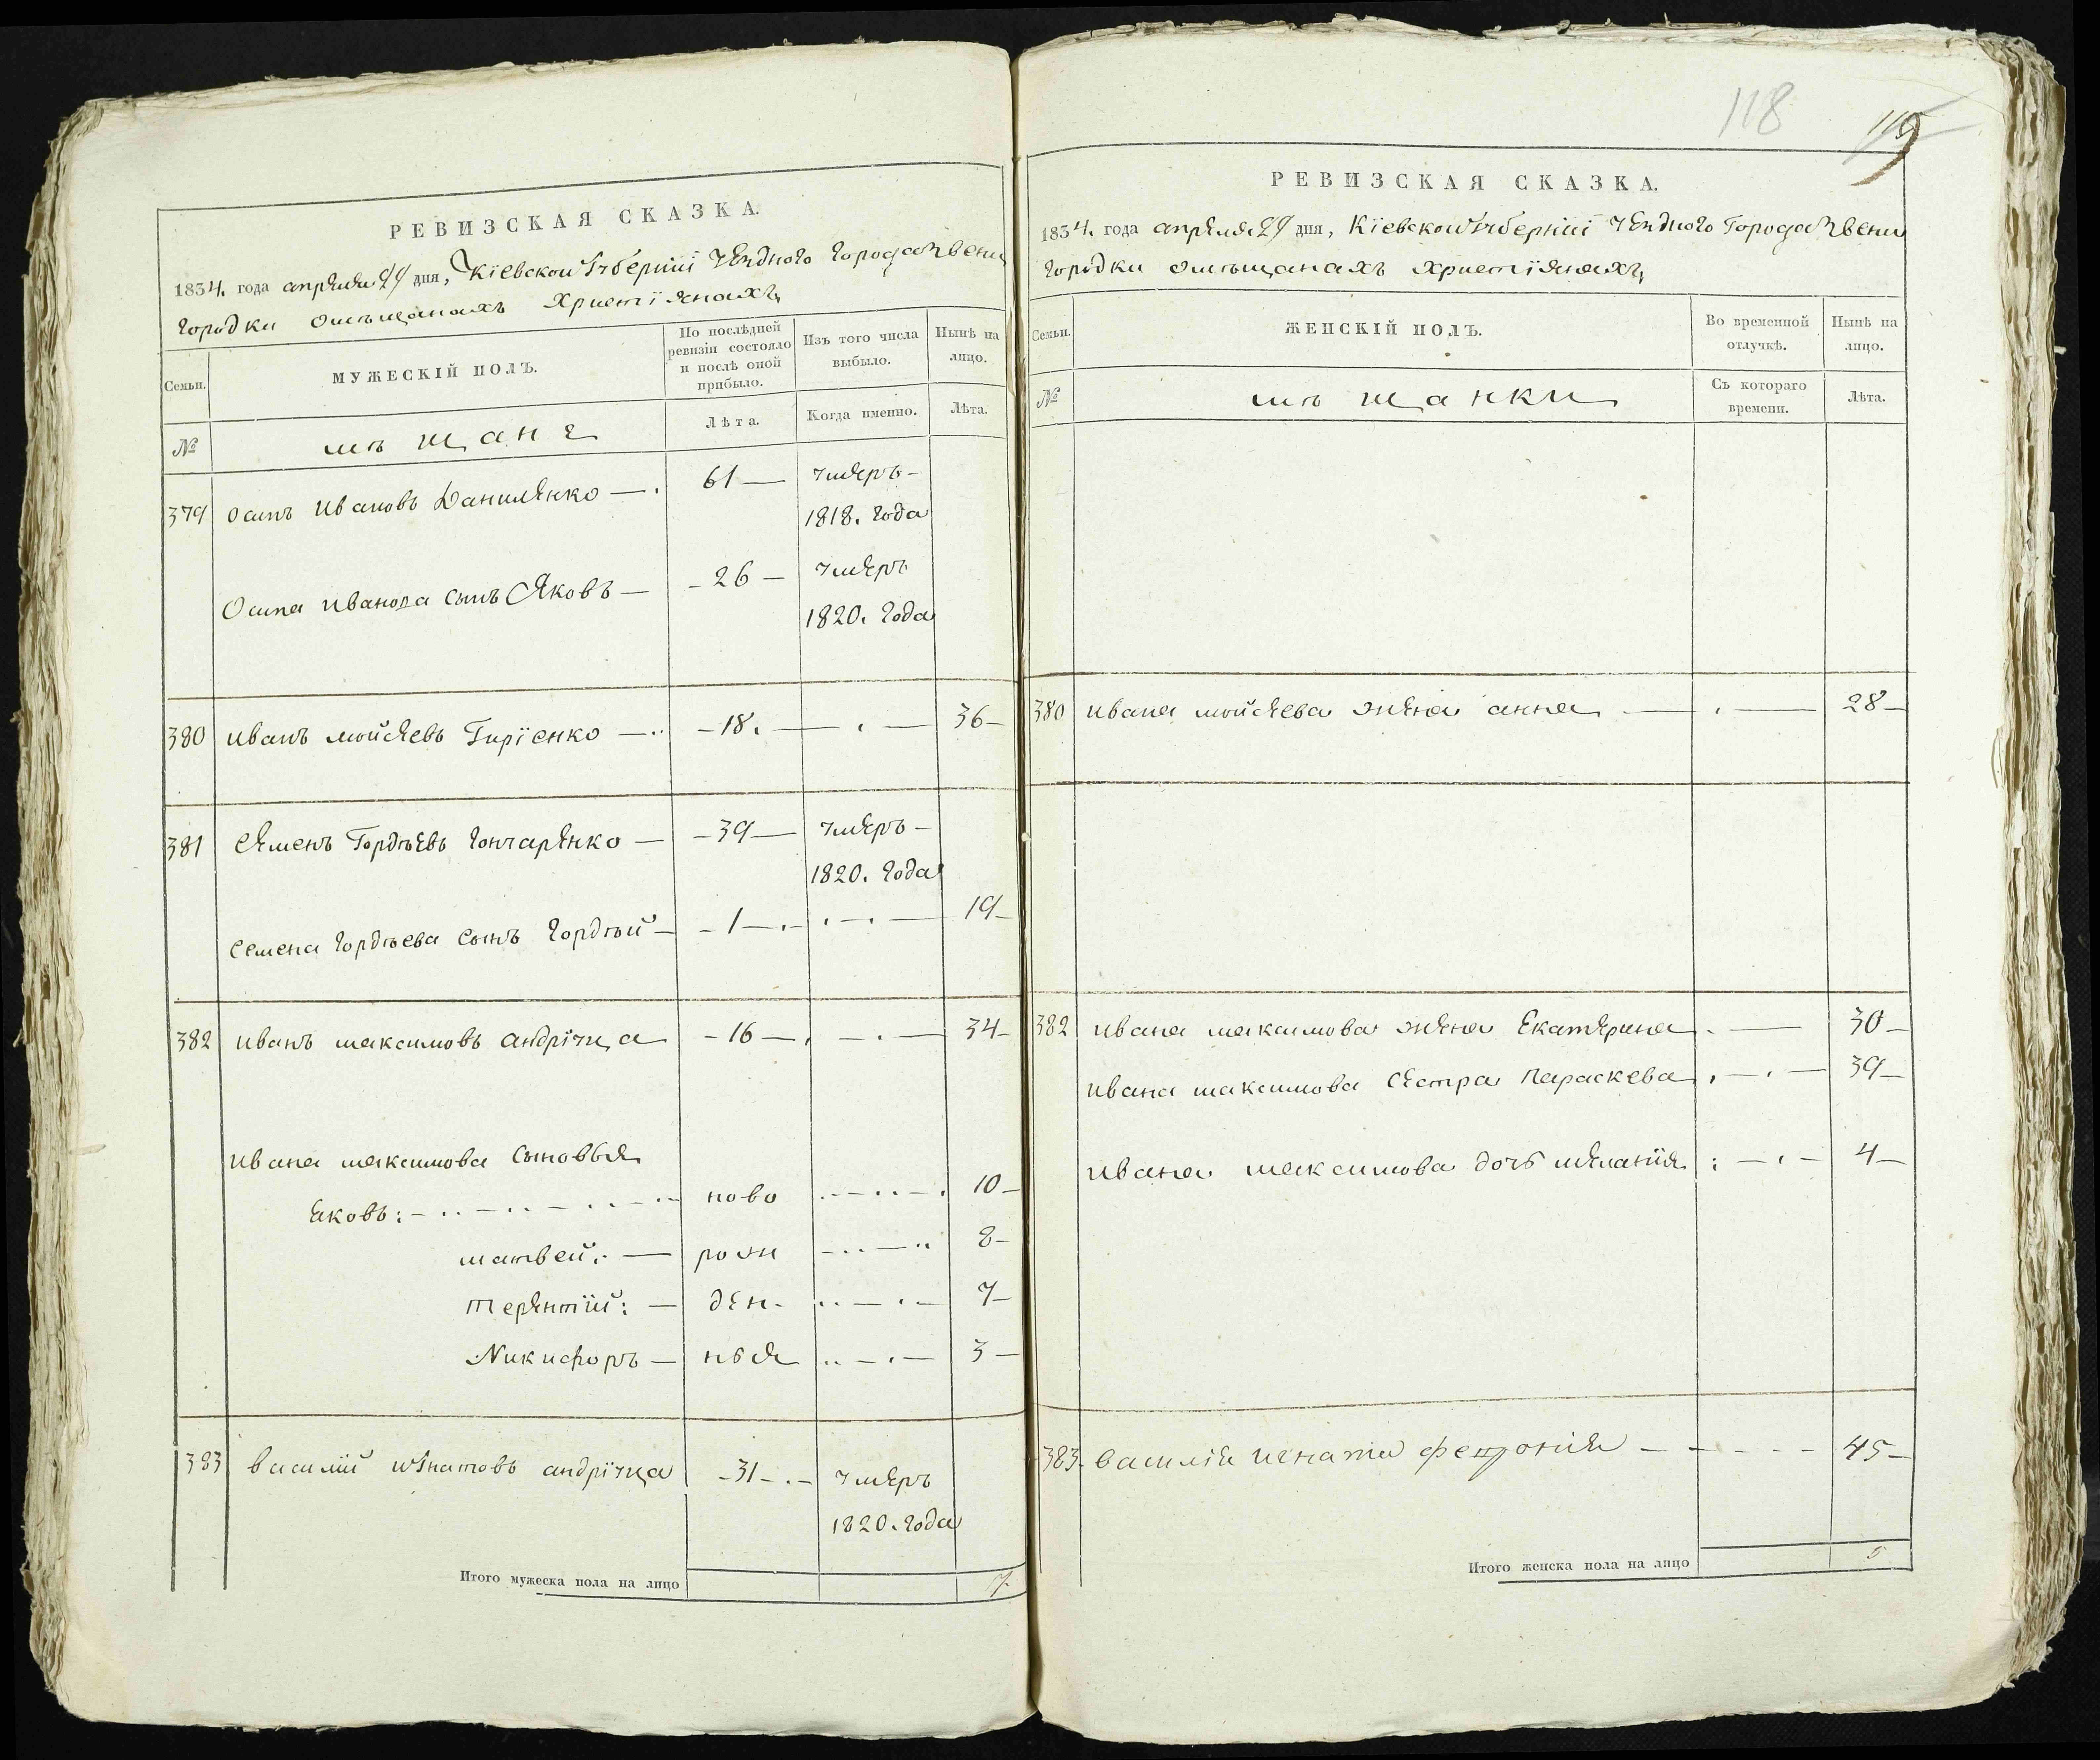 РЕВИЗСКАЯ СКАЗКА.
1834. года апреля 29 дня, Кіевской Губерніи уезднаго города Звени
городки омѣщанахъ христіянахъ,
Семьи.
МУЖЕСКІЙ ПОЛЪ.
По послѣдней
ревизіи состояло
и послѣ оной
прибыло.
Изъ того числа
выбыло.
Нынѣ на
лицо.
№
мѣщане
Лѣта.
Когда именно.
Лѣта.
379 осипъ Ивановъ Даниленко — 61 — умеръ —
1818. года
Осипа Иванова сынъ Яковъ — 26 — умеръ
1820. года
380 иванъ мойсеевъ Гиріенко — 18. — 36 —
381 семенъ Гордѣевъ гончаренко — 39 — умеръ —
1820. года
семена гордѣева сынъ гордѣй — 1 — 19 —
382 иванъ максимовъ андріуца — 16 — 34 —
ивана максимова сыновья
яковъ: ново 10 —
матвей: — рож 8 —
терентій: — ден- 7 —
Никифоръ — нья 3 —
383 василій игнатовъ андріуца — 31 — умеръ
1820. года
Итого мужеска пола на лицо 7
118
119
РЕВИЗСКАЯ СКАЗКА.
1834. года апреля 29 дня, Кіевской Губерніи уезднаго города Звени
городки омѣщанахъ христіянахъ,
Семьи.
ЖЕНСКІЙ ПОЛЪ.
Во временной
отлучкѣ.
Нынѣ на
лицо.
№
мѣщанки
Съ котораго
времени.
Лѣта.
380 ивана мойсеева жена анна — 28 —
382 ивана максимова жена Екатерина — 30 —
ивана максимова сестра Параскева — 39 —
ивана максимова дочь меланія — 4 —
383. василія игнатa 45 —
Итого женска пола на лицо 5